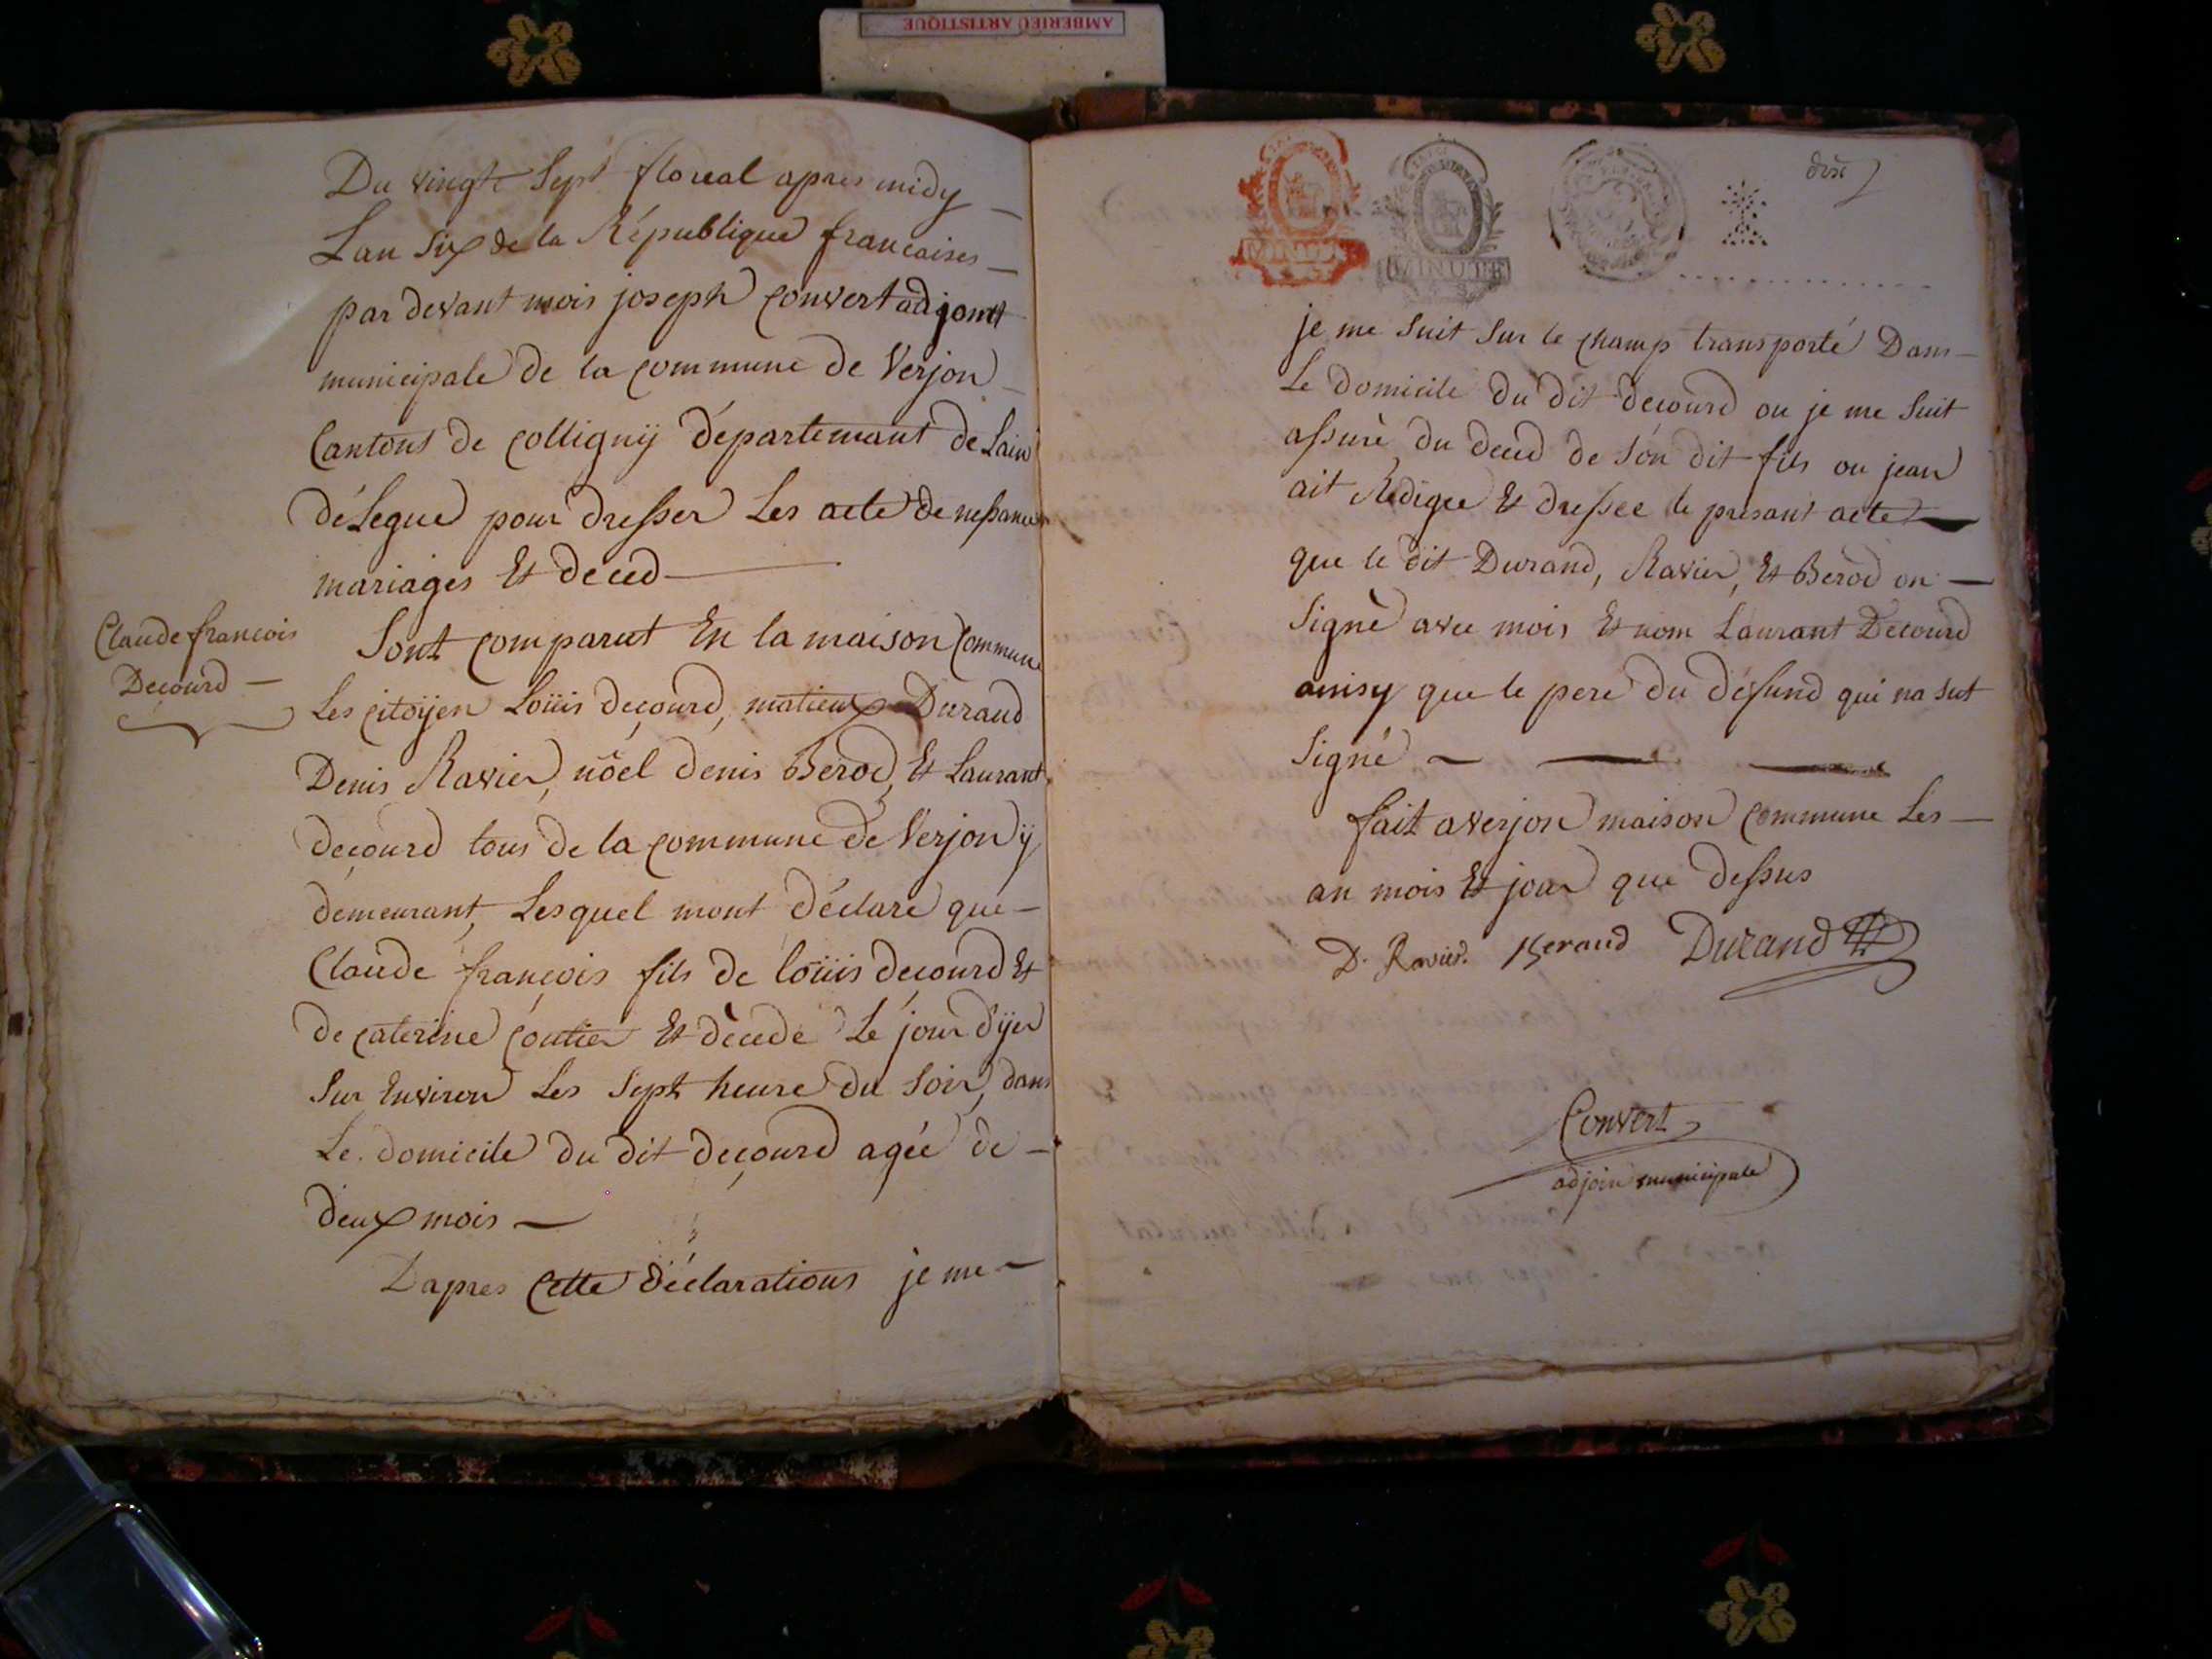 AMBERIEU ARTISTIQUE
Du vingt Sept floreal apres midy
Lan Six de la République francaises
par devant mois joseph Convert adjoint
municipale de la Commune de Verjon
Cantons de Colligny départemant de Lain
délegué pour dresser Les acte de nessance
mariages Et deced
Claude francois
Decourd
Sont Comparut En la maison Commune
Les Citoÿen Loüis decourd, matieux Durand
Denis Ravier, noël denis Berod, Et Laurant
decourd tous de la Commune de Verjon ÿ
demeurant, Lesquel mont déclaré que
Claude françois fils de loüis decourd Et
de Caterine Coutier Et décedé Le jour d'yer
Sur Environ Les Sept heure du Soir, dans
Le domicile du dit decourd agée de
deux mois
Dapres Cette déclarations je me
dix
MINUTE
MINUTE
je me Suit Sur le Champ transporté Dans
Le domicile du dit decourd ou je me Suit
assuré du deced de Son dit fils ou jean
ait Redigee Et dressee le présant acte
que le dit Durand, Ravier, Et Berod on
Signé avec mois Et nom Laurant Decourd
ainsy que le pere du défund qui na sut
Signé
fait a verjon maison Commune Les
an mois Et jour que dessus
D. Ravier. Beraud Durand
Convert
adjoin municipale